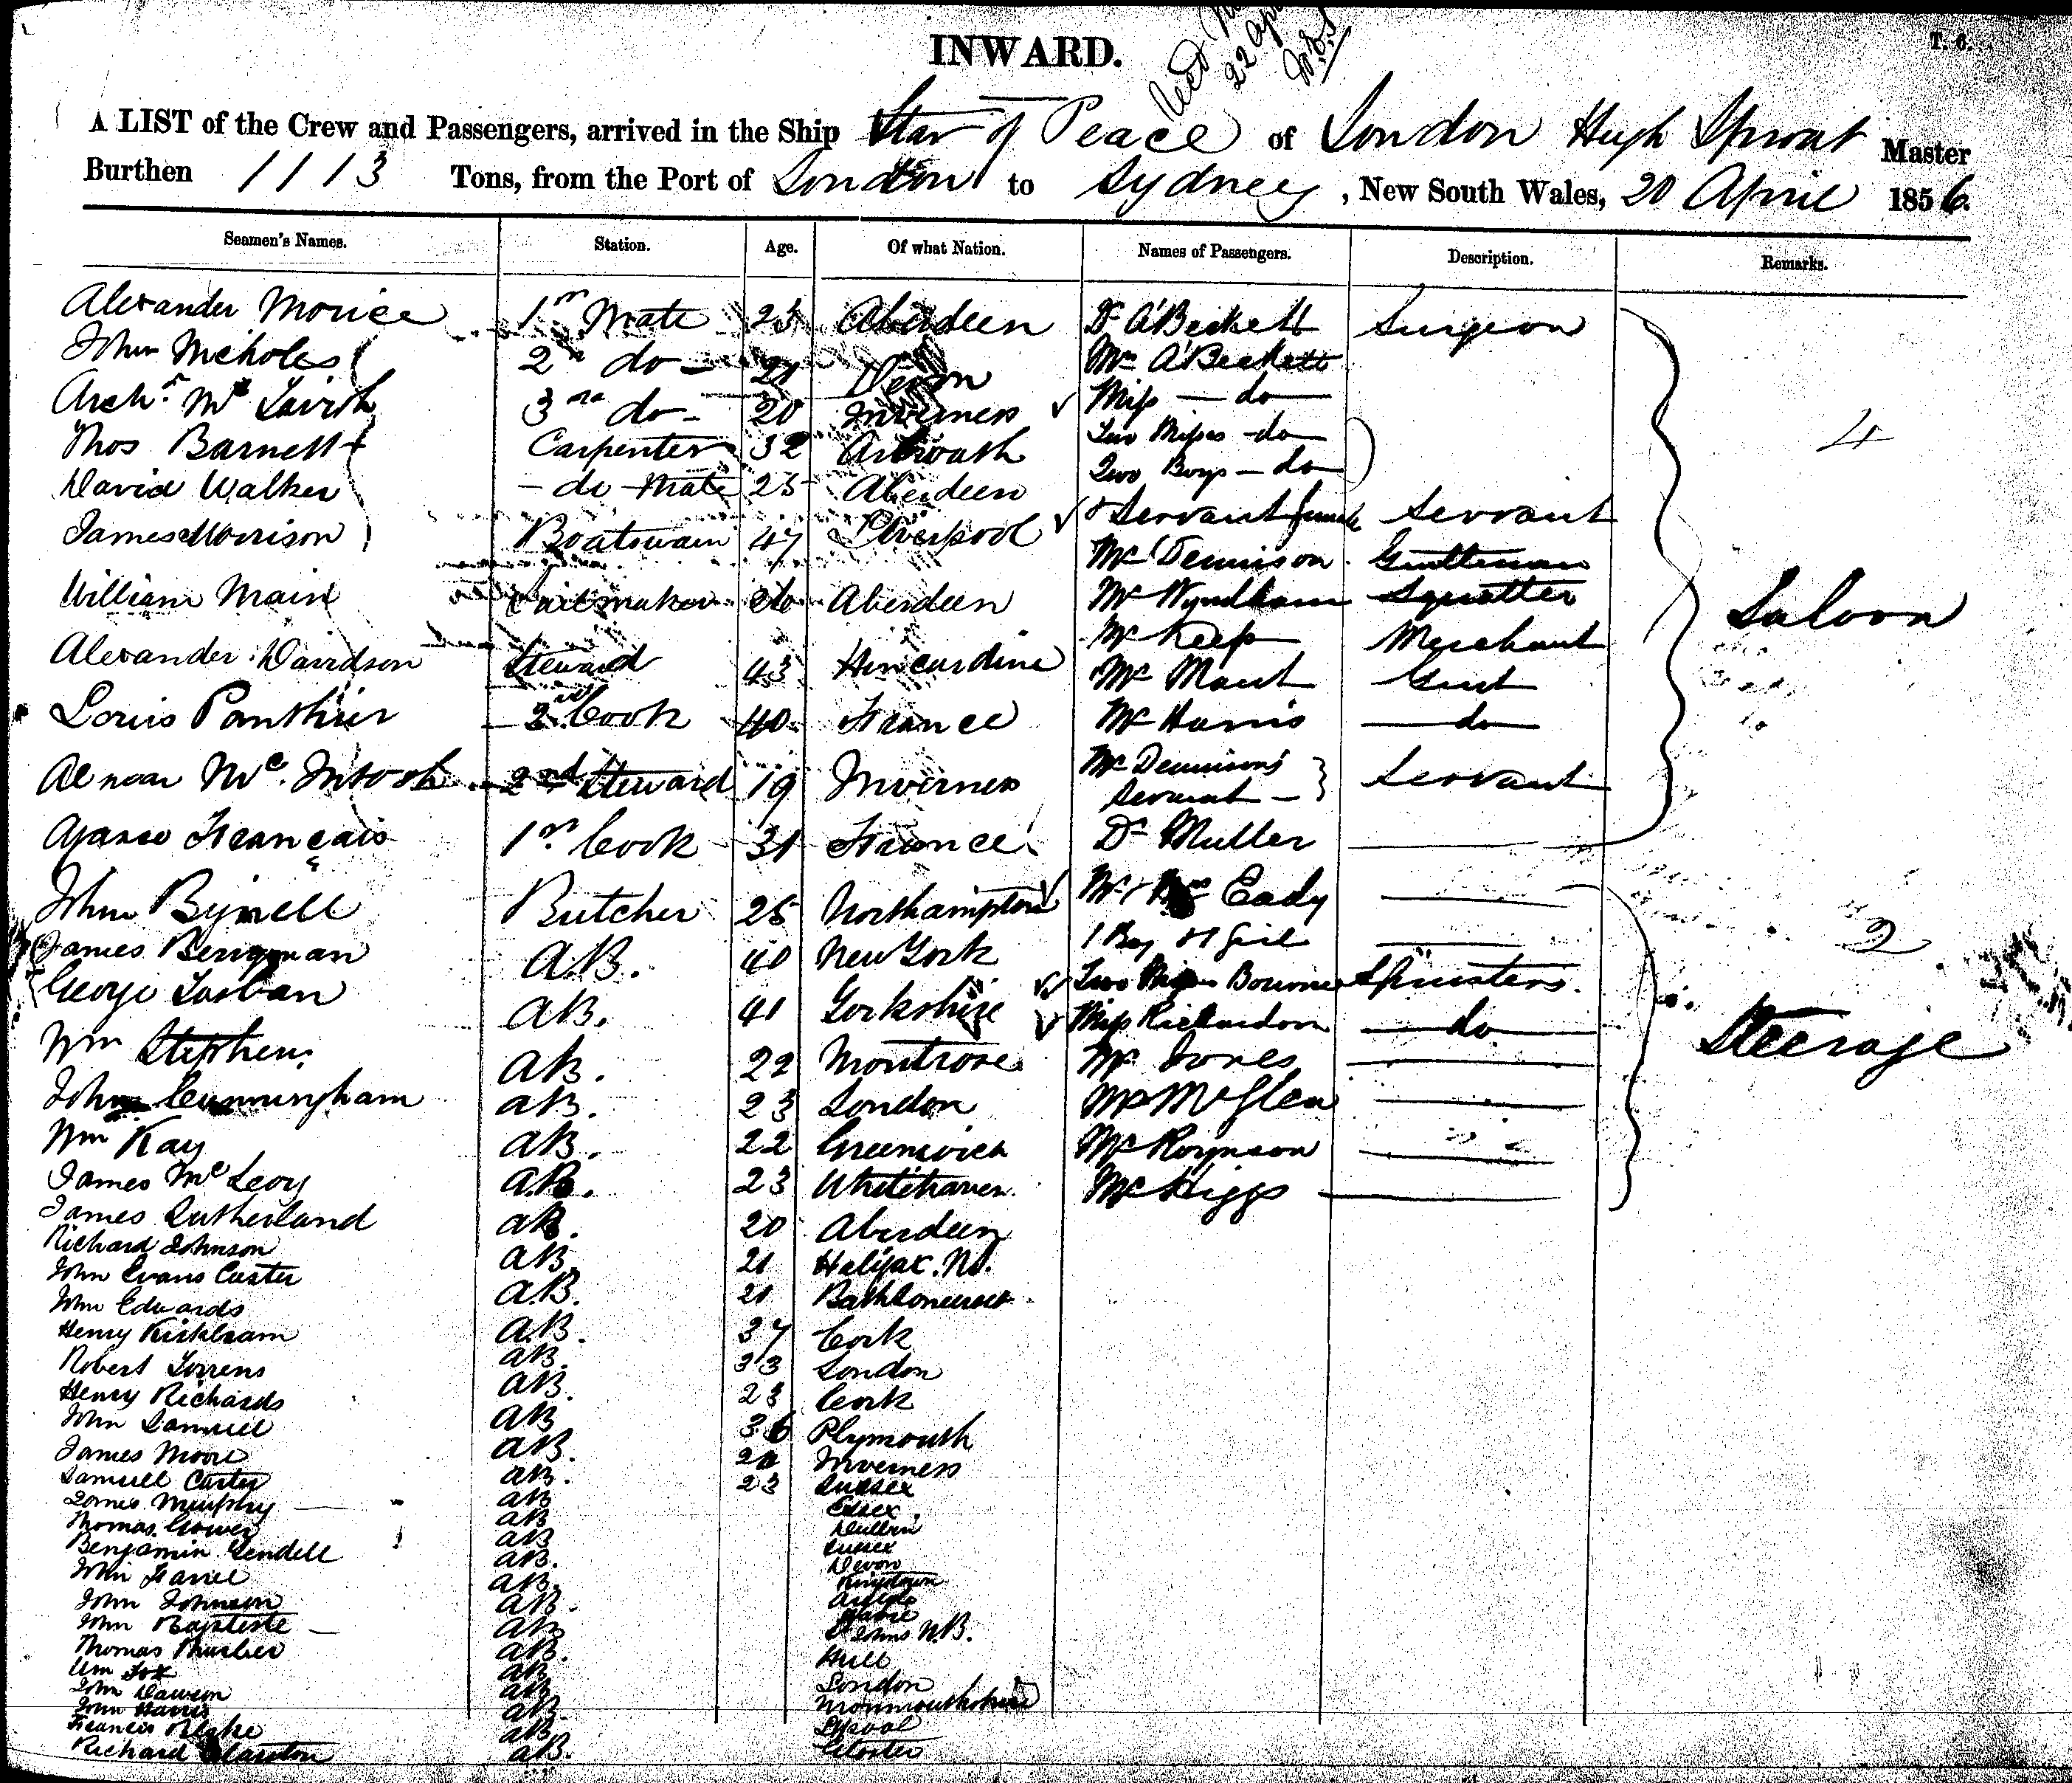 INWARD.
T. 6.
22 Apl
A LIST of the Crew and Passengers, arrived in the Ship Star of Peace of London Hugh Sproat Master
Burthen 1113 Tons, from the Port of London to Sydney, New South Wales, 20 April 1856.
Seamen's Names. Station. Age. Of what Nation. Names of Passengers. Description. Remarks.
Alexander Morice 1st Mate 25 Aberdeen Dr A'Beckett Surgeon
John Nicholes 2nd do 21 Devon Mrs A'Beckett
Archd. Mc Tavish 3rd do 20 Inverness Miss — do 4
Thos Barnett Carpenter 32 Arbroath Two Misses - do
David Walker - do Mate 25 Aberdeen Two Boys - do
James Morrison Boatswain 47 Liverpool Servant female Servant
Mr Dennison Gentleman
William Main Sailmaker Aberdeen Mr Wyndham Squatter Saloon
Mr Keep Merchant
Alexander Davidson Steward 43 Kincardine Mr Mant Gent
Louis Panthier 2nd Cook 40 France Mr Harris do
Mc. Intosh 2nd Steward 19 Inverness Mr Dennison's Servant } Servant
Français 1st Cook 31 France Dr Muller
John Bynell Butcher 25 Northampton Mr & Mrs Eady
James Bergman A.B. 40 New York 1 Boy & 1 Girl 2
George Tarban AB. 41 Yorkshire Two Misses Bourne Spinsters.
Miss Richardson do
Wm Stephens AB. 22 Montrose Mr Jones Steerage
John Cunningham AB. 23 London
Wm Kay AB. 22 Greenwich Mr Roynson
James Mc Levy AB. 23 Whitehaven Mr Higgs
James Sutherland AB. 20 Aberdeen
Richard Johnson AB. 21 Halifax. NS.
John Evans Carter A.B. 21 Bath Somerset
John Edwards A.B. 37 Cork
Henry Kirkham AB. 33 London
Robert Torrens AB. 23 Cork
Henry Richards AB 36 Plymouth
John Samuell AB. Inverness
James Moore AB. 23 Sussex
Samuell Carter AB Essex
James Murphy AB Dublin
Thomas Gower AB Sussex
Benjamin Vendell AB. Devon
John AB. Kingstown
John Johnson AB.
John Baptiste AB St Johns N.B.
Thomas AB. Hull
Wm Fox AB London
John Dawson AB Monmouthshire
John Harris AB.
Francis Blake AB.
Richard AB.